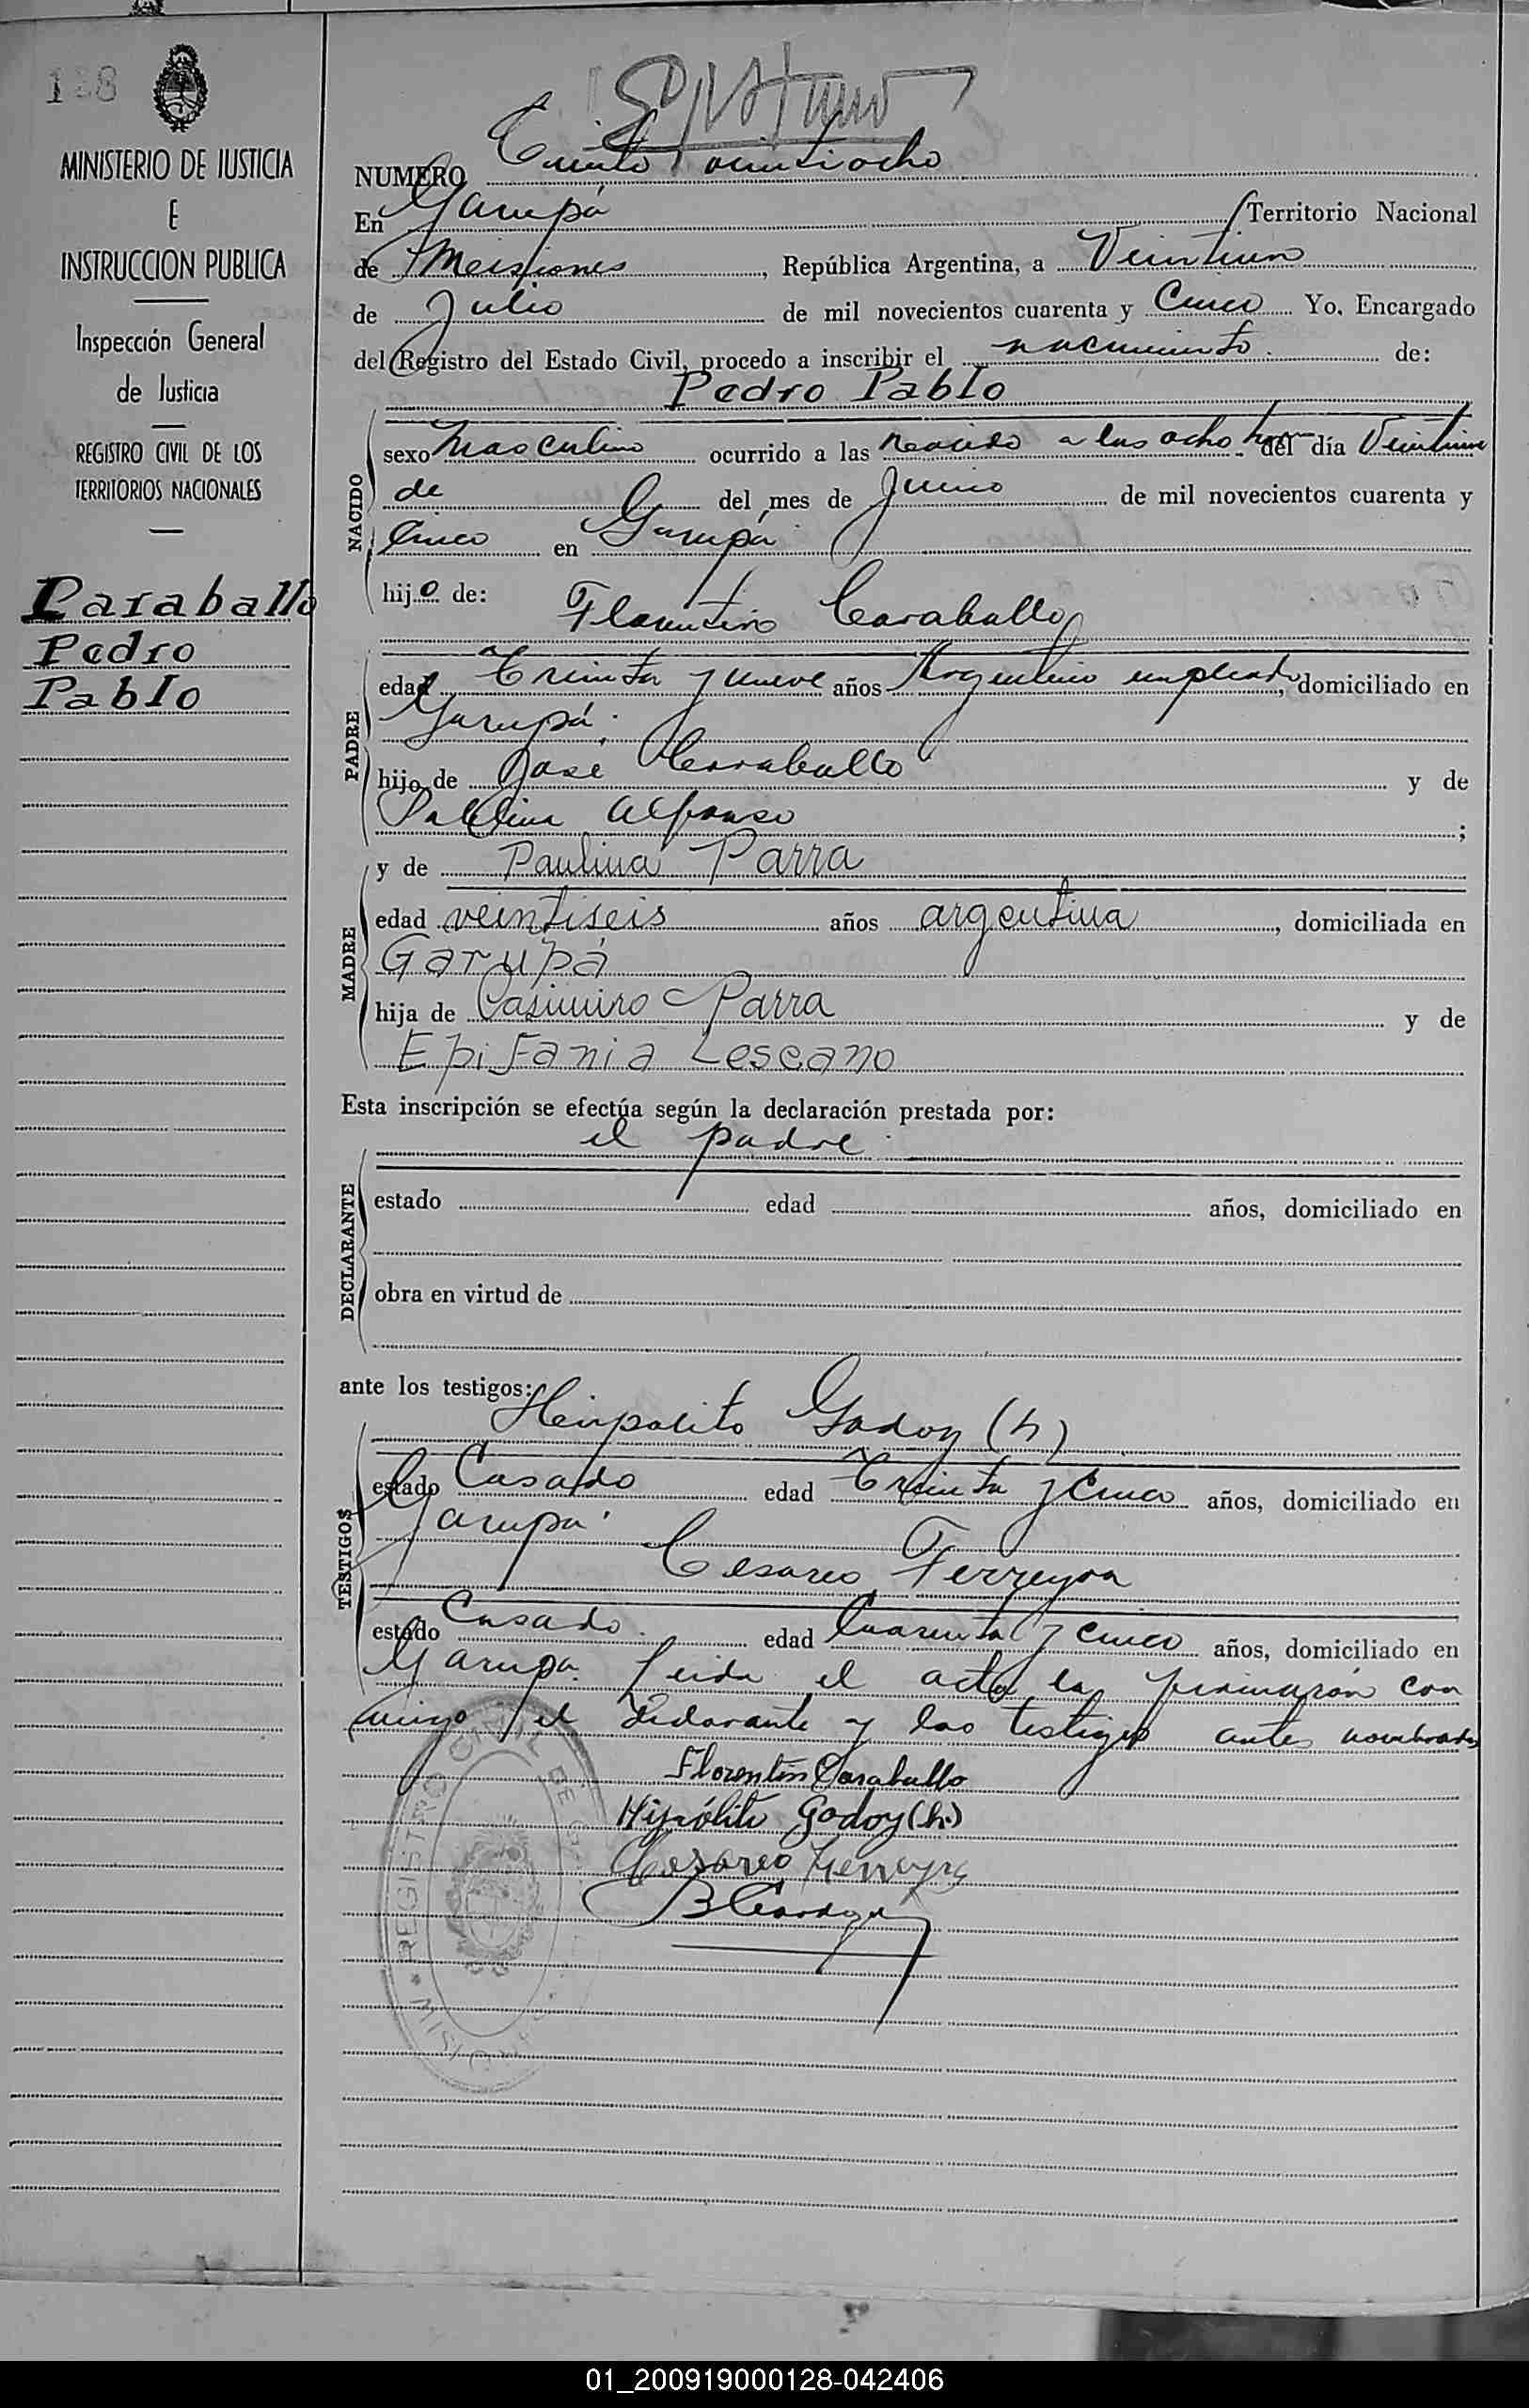 138
MINISTERIO DE JUSTICIA
E
INSTRUCCION PUBLICA
Inspección General
de Justicia
REGISTRO CIVIL DE LOS
TERRITORIOS NACIONALES
Caraballo
Pedro
Pablo
NUMERO Ciento veintiocho
En Garupá Territorio Nacional
de Meisiones, República Argentina, a Veintiun
de Julio de mil novecientos cuarenta y Cinco Yo, Encargado
del Registro del Estado Civil, procedo a inscribir el nacimiento de:
Pedro Pablo
NACIDO
sexo Masculino ocurrido a las nacido a las ocho horas del día Veintinueve
de del mes de Junio de mil novecientos cuarenta y
Cinco en Garupá
hijo de: Florentino Caraballo
PADRE
edad Treinta y nueve años Argentino empleado, domiciliado en
Garupá
hijo de José Caraballo y de
Alfonso ;
y de Paulina Parra
MADRE
edad veintiseis años argentina, domiciliada en
Garupá
hija de Casimiro Parra y de
Epifania Lescano
Esta inscripción se efectúa según la declaración prestada por:
el padre
DECLARANTE
estado edad años, domiciliado en
obra en virtud de
ante los testigos: Heipolito Godoy (h)
TESTIGOS
estado Casado edad Treinta y Cinco años, domiciliado en
Garupá
Cesareo Ferreyra
estado Casado edad Cuarenta y Cinco años, domiciliado en
Garupa. Leida el acta la firmaron con
migo el declarante y los testigos antes nombrados
Florentin Caraballo
Hipólito Godoy (h.)
Cesareo Ferreyra
REGISTRO CIVIL DE
01_200919000128-042406